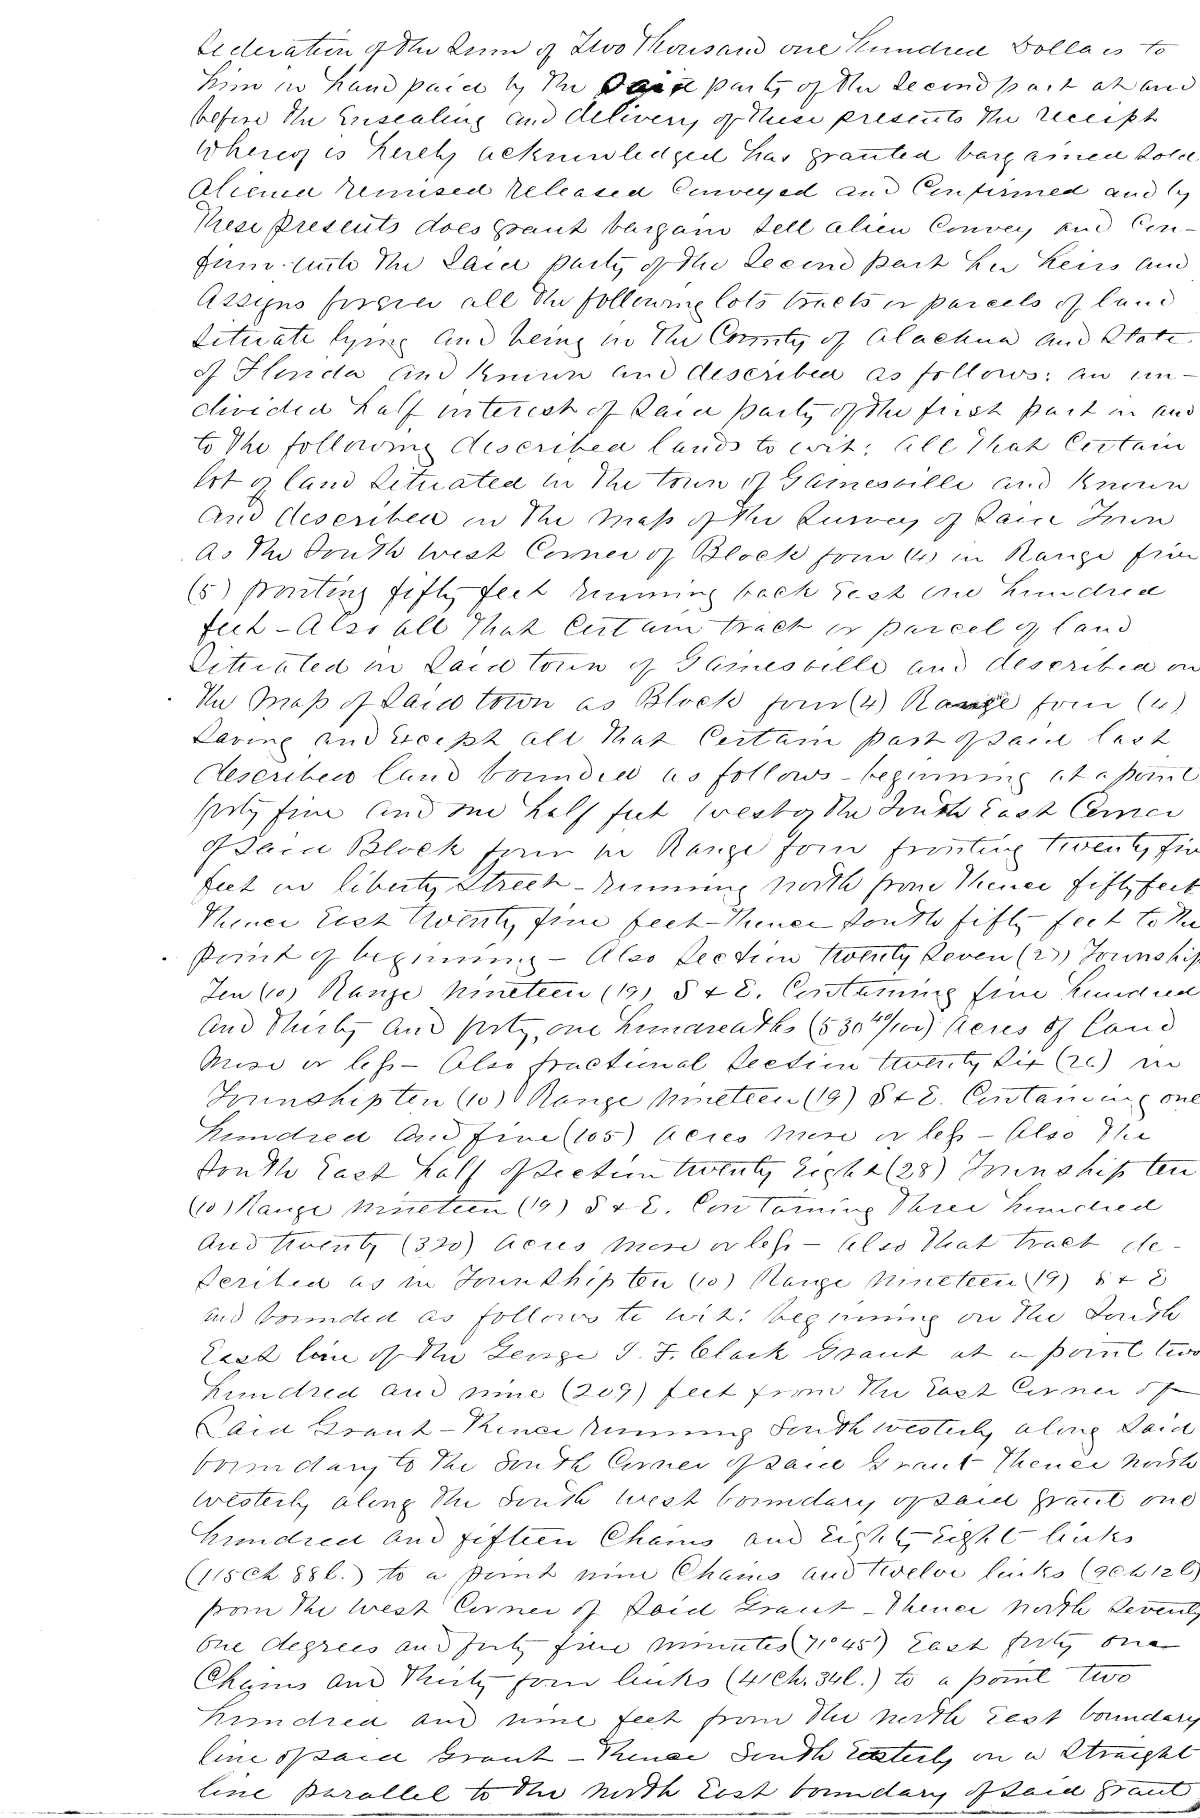 sideration of the Sum of Two Thousand one hundred Dollars to
him in hand paid by the Said party of the Second part at and
before the Ensealing and delivery of these presents the receipt
Whereof is hereby acknowledged has granted bargained Sold
aliened remised released Conveyed and Confirmed and by
These presents does grant bargain Sell alien Convey and Con-
firm unto the Said party of the Second part her heirs and
Assigns forever all the following lots tracts or parcels of land
Situate lying and being in the County of Alachua and State
of Florida and Known and described as follows: an un-
divided half interest of Said party of the first part in and
to the following described lands to wit: all That Certain
lot of land Situated in the town of Gainesville and Known
And described on the Map of the Survey of Said Town
As the South West Corner of Block four (4) in Range five
(5) fronting fifty feet running back East one hundred
feet - Also all That Certain tract or parcel of land
Situated in Said town of Gainesville and described on
The Map of Said town as Block four (4) Range four (4)
Saving and Except all that Certain part of said last
described land bounded as follows - beginning at a point
forty five and one half feet West of the South East Corner
of Said Block four in Range four fronting twenty five
feet on liberty Street - running north from Thence fifty feet
Thence East twenty five feet - Thence South fifty feet to the
Point of beginning - Also Section twenty Seven (27) Township
Ten (10) Range Nineteen (19) S & E. Containing five hundred
And Thirty and forty, one hundreaths (530 40/100) Acres of land
More or less - Also fractional Section twenty Six (26) in
Township ten (10) Range Nineteen (19) S & E. Containing one
hundred and five (105) Acres More or less - Also The
South East half of Section twenty Eight (28) Township ten
(10) Range Nineteen (19) S & E. Containing Three hundred
And twenty (320) Acres More or less - Also That tract de-
scribed as in Township ten (10) Range Nineteen (19) S & E
and bounded as follows to wit: beginning on the South
East line of the George I. F. Clark Grant at a point two
hundred and nine (209) feet from the East Corner of
Said Grant - Thence running South westerly along Said
boundary to the South Corner of said Grant Thence North
Westerly along the South West boundary of said grant one
hundred and fifteen Chains and Eighty Eight links
(115 Ch 88 l.) to a point nine Chains and twelve links (9 Ch 12 l)
from the West Corner of Said Grant - Thence North Seventy
One degrees and forty five minutes (71° 45') East forty one
Chains and Thirty four links (41 Ch. 34 l.) to a point two
hundred and nine feet from the North East boundary
line of said Grant - Thence South Easterly on a Straight
line parallel to the North East boundary of Said grant